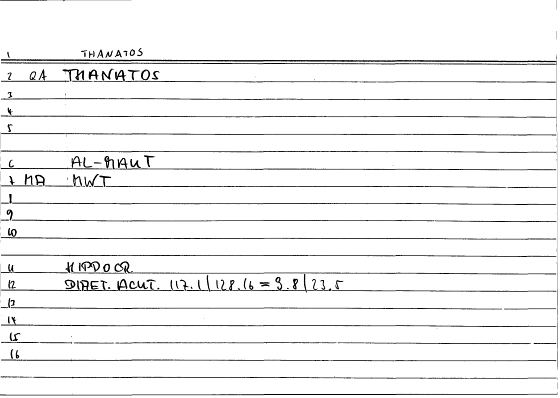 1 THANATOS
2 QA THANATOS
3
4
5
6 AL-MAUT
7 MA MWT
8
9
10
11 HIPPOCR.
12 DIAET. ACUT. 117.1/128.16 = 3.8/23.5
13
14
15
16